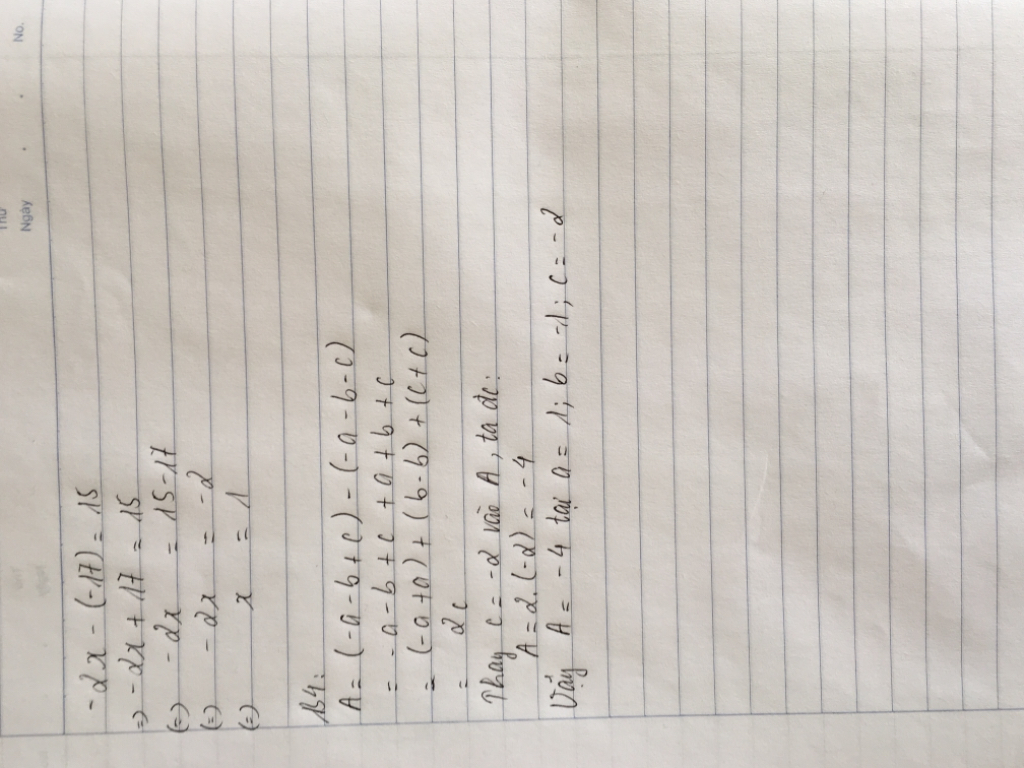 No.
Thứ
Ngày
- 2x - (-17) = 15
=) - 2x + 17 = 15
(=) - 2x = 15 - 17
(=) - 2x = - 2
(=) x = 1
B4:
A = (-a - b + c) - (-a - b - c)
= - a - b + c + a + b + c
= (-a + a) + (b - b) + (c + c)
= 2c
Thay c = -2 vào A, ta đc:
A = 2.(-2) = - 4
Vậy A = - 4 tại a = 1; b = -1; c = -2